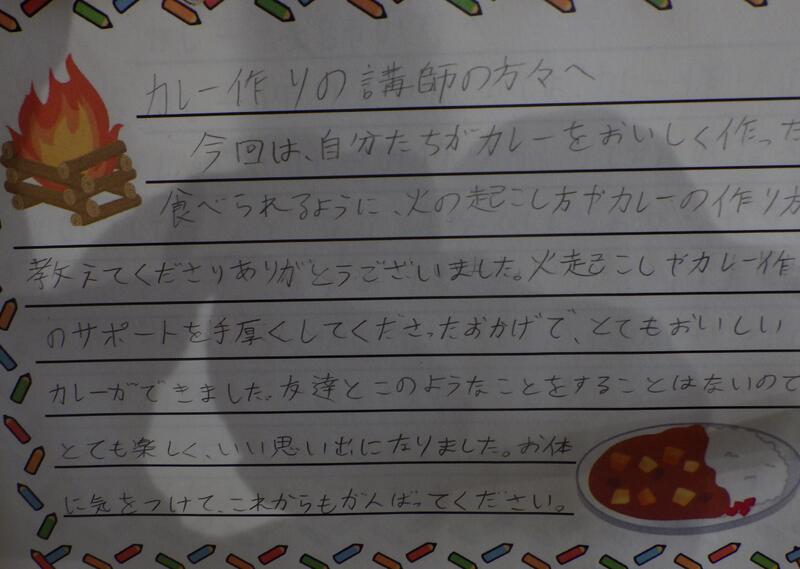 カレー作りの講師の方々へ
今回は、自分たちがカレーをおいしく作った
食べられるように、火の起こし方やカレーの作り方
教えてくださりありがとうございました。火起こしやカレー作
のサポートを手厚くしてくださったおかげで、とてもおいしい
カレーができました。友達とこのようなことをすることはないので
とても楽しく、いい思い出になりました。お体
に気をつけて、これからもがんばってください。